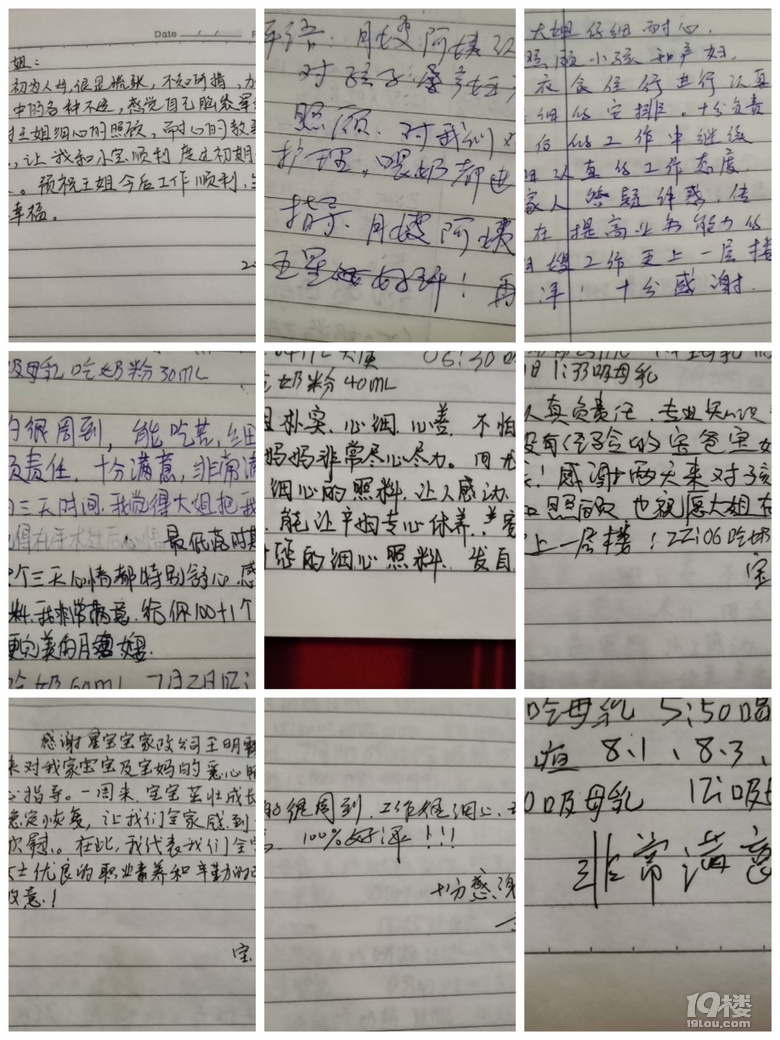 Date
姐：
初为人母，很是慌张，不知所措，
中的各种不适，感觉自己脸
王姐细心的照顾，耐心的教
，让我和小宝顺利度过初期
。预祝王姐今后工作顺利，
幸福。
评语：月嫂阿姨
对孩子
照顾，对我们
护理，喂奶都
指导。月嫂阿姨
五星 好评！再
大姐仔细耐心，
照顾小孩和产妇，
衣食住行进行认真
细的安排。十分负责
后的工作中继续
认真的工作态度，
家人答疑解惑，
在提高业务能力的
嫂工作更上一层楼
评！十分感谢
吸母乳吃奶粉30ML
的很周到，能吃苦，细
负责任，十分满意，非常满
三天时间，我觉得大姐把我
最低落时期
个三天心情都特别舒心，感
料，我非常满意，给你100+1个
更完美的月嫂
吃奶60ML 7月2日
06:30
吃奶粉40ML
朴实、心细、心善，不怕
妈妈非常尽心尽力。
细心的照料，让人感动，
，能让产妇专心休养，
的细心照料，发自
1:33吸母乳
认真负责任，专业知识
没有经验的宝爸宝
！感谢 两天来对孩
照顾 也祝愿大姐
上一层楼！22:06吃奶
宝
感谢星宝宝家政公司王明
来对我家宝宝及宝妈的悉心照
心指导。一周来，宝宝茁壮成长
恢复，让我们全家感到
欣慰。在此，我代表我们全
女士优良的职业素养和辛勤的
敬意！
宝
的很周到，工作很细心，
100%好评!!!
十分感谢
吃母乳 5:50喝
疸 8.1、8.3、
吸母乳 12:吸
非常满意
19楼
19lou.com